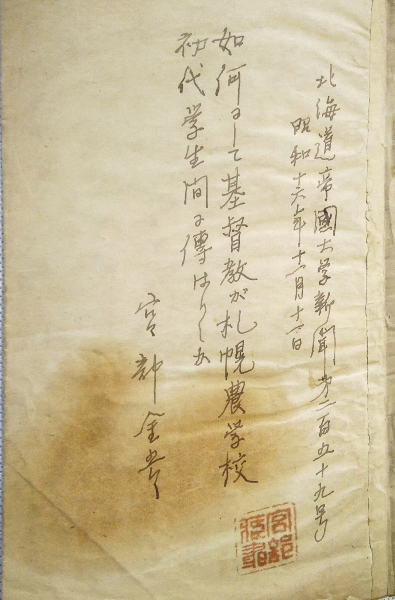 北海道帝國大学新聞第二百五十九号
昭和十六年十一月十一日
如何にして基督教が札幌農学校
初代学生間に傳はりしか
宮部金吾
宮部蔵書